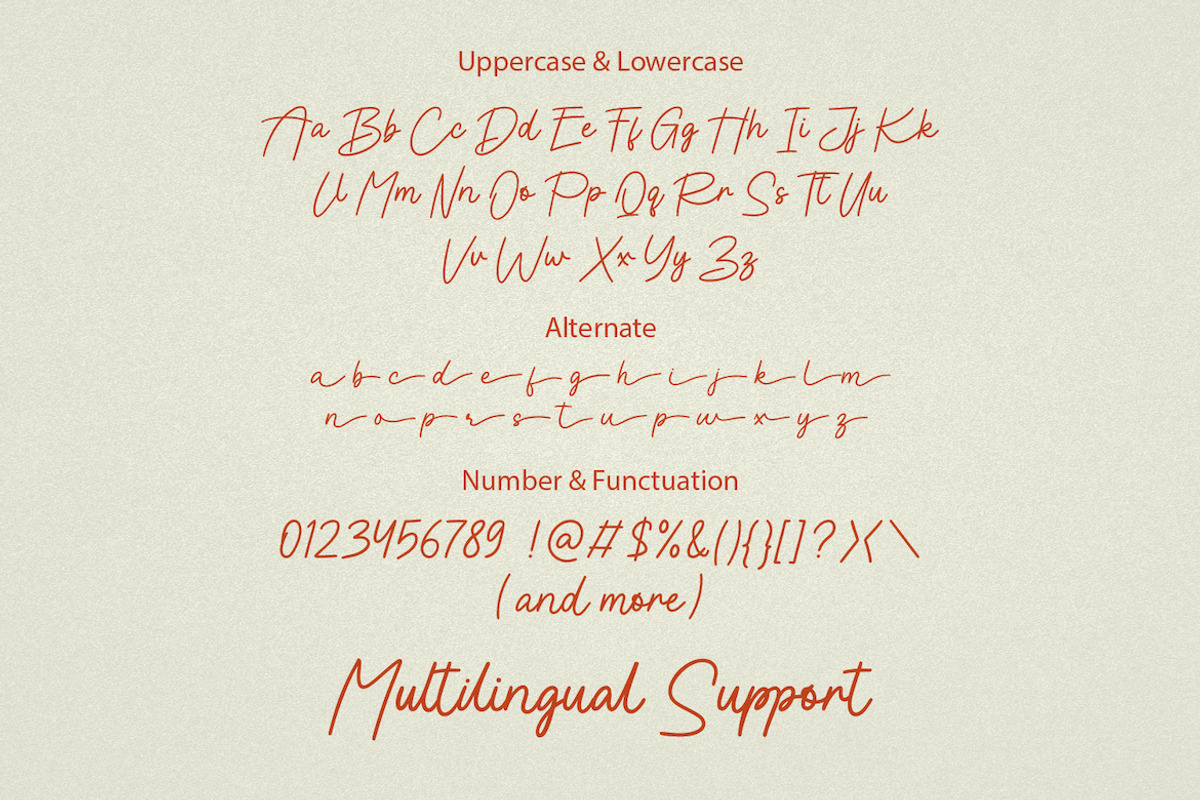 Uppercase & Lowercase
Aa Bb Cc Dd Ee Ff Gg Hh Ii Jj Kk
Ll Mm Nn Oo Pp Qq Rr Ss Tt Uu
Vv Ww Xx Yy Zz
Alternate
a b c d e f g h i j k l m
n o p r s t u p w x y z
Number & Functuation
0123456789 !@#$%&(){}[]?><\
(and more)
Multilingual Support